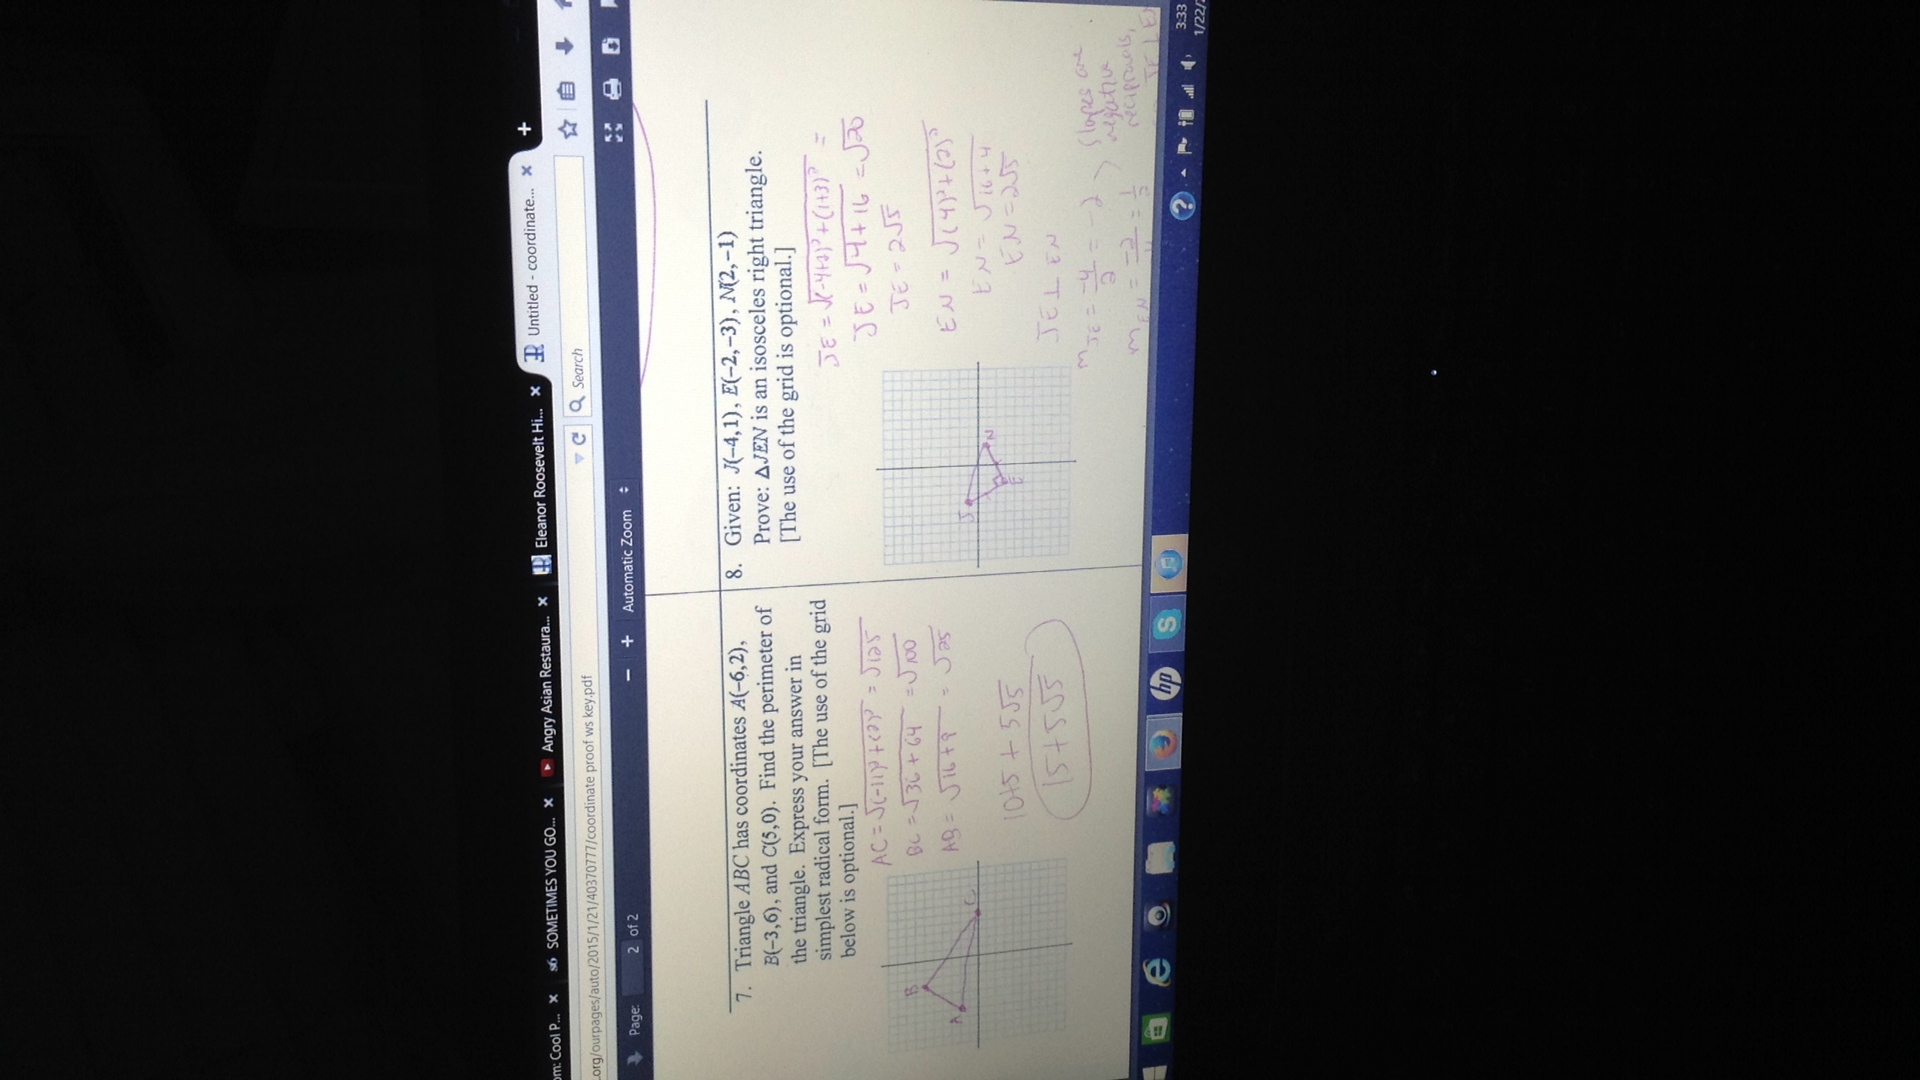 om: Cool P... x
SOMETIMES YOU GO... x
Angry Asian Restaura... x
Eleanor Roosevelt Hi... x
Untitled - coordinate... x
+
.org/ourpages/auto/2015/1/21/40370777/coordinate proof ws key.pdf
Search
Page: 2 of 2
− + Automatic Zoom
7. Triangle ABC has coordinates A(−6,2),
B(−3,6), and C(5,0). Find the perimeter of
the triangle. Express your answer in
simplest radical form. [The use of the grid
below is optional.]
AC = √(-11)² + (2)² = √125
BC = √36 + 64 = √100
AB = √16 + 9 = √25
B
A
C
10+5 + 5√5
15+5√5
8. Given: J(−4,1), E(−2,−3), N(2,−1)
Prove: △JEN is an isosceles right triangle.
[The use of the grid is optional.]
JE = √(-4+2)² + (1+3)² =
JE = √4 + 16 = √20
JE = 2√5
EN = √(4)² + (2)²
EN = √16 + 4
EN = 2√5
J
N
E
JE ⊥ EN
m JE = -4/2 = -2
Slopes are
negative
reciprocals,
m EN = -2/ = 1/2
JE ⊥ EN
hp
S
?
3:33
1/22/